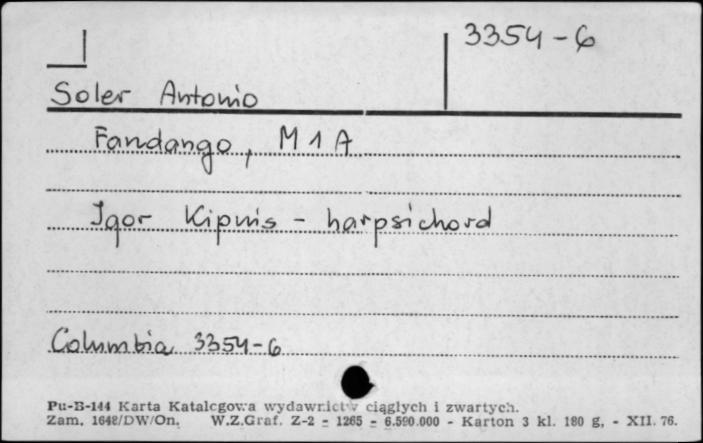 3354-6
Soler Antonio
Fandango, M 1 A
Igor Kipnis - harpsichord
Columbia 3354-6
Pu-B-144 Karta Katalogowa wydawnictw ciągłych i zwartych.
Zam. 1648/DW/On. W.Z.Graf. Z-2 - 1265 - 6.590.000 - Karton 3 kl. 180 g. - XII. 76.